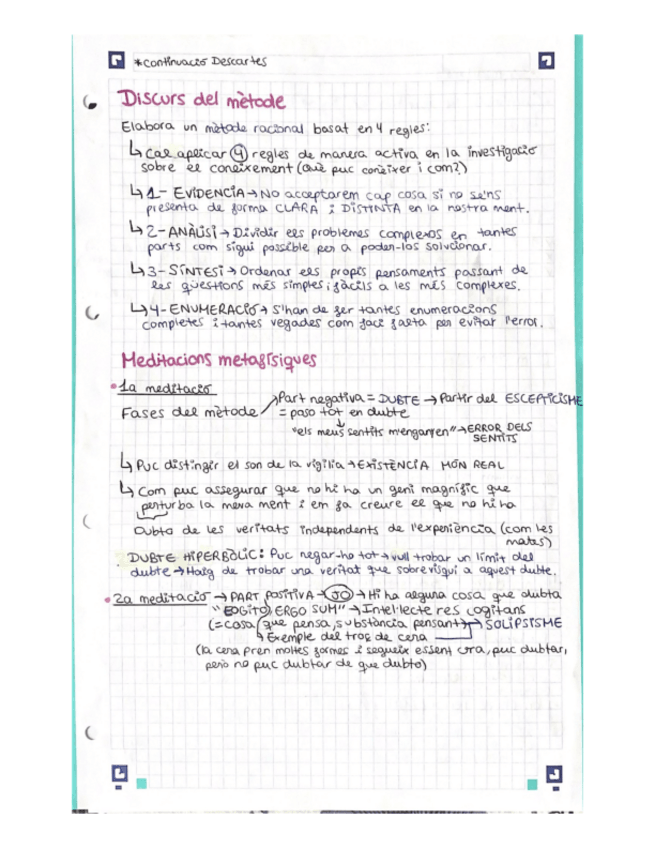 *continuació Descartes
Discurs del mètode
Elabora un mètode racional basat en 4 regles:
↳ Cal aplicar 4 regles de manera activa en la investigació
sobre el coneixement (Què puc conèixer i com?)
↳ 1- EVIDÈNCIA → No acceptarem cap cosa si no se'ns
presenta de forma CLARA i DISTINTA en la nostra ment.
↳ 2- ANÀLISI → Dividir els problemes complexos en tantes
parts com sigui possible per a poder-los solucionar.
↳ 3- SÍNTESI → Ordenar els propis pensaments passant de
les qüestions més simples i fàcils a les més complexes.
↳ 4- ENUMERACIÓ → S'han de fer tantes enumeracions
completes i tantes vegades com faci falta per evitar l'error.
Meditacions metafísiques
• 1a meditació
Part negativa = DUBTE → Partir del ESCEPTICISME
Fases del mètode = paso tot en dubte
"els meus sentits m'enganyen" → ERROR DELS
SENTITS
↳ Puc distingir el son de la vigília → EXISTÈNCIA MÓN REAL
↳ Com puc assegurar que no hi ha un geni magnífic que
perturba la meva ment i em fa creure el que no hi ha
Dubto de les veritats independents de l'experiència (com les
mates)
DUBTE HIPERBÒLIC: Puc negar-ho tot → vull trobar un límit del
dubte → Haig de trobar una veritat que sobrevisqui a aquest dubte.
• 2a meditació → PART POSITIVA → JO → Hi ha alguna cosa que dubta
"COGITO, ERGO SUM" → Intel·lecte res cogitans
(= cosa que pensa, substància pensant) → SOLIPSISME
↳ Exemple del tros de cera
(la cera pren moltes formes i segueix essent cera, puc dubtar,
però no puc dubtar de que dubto)